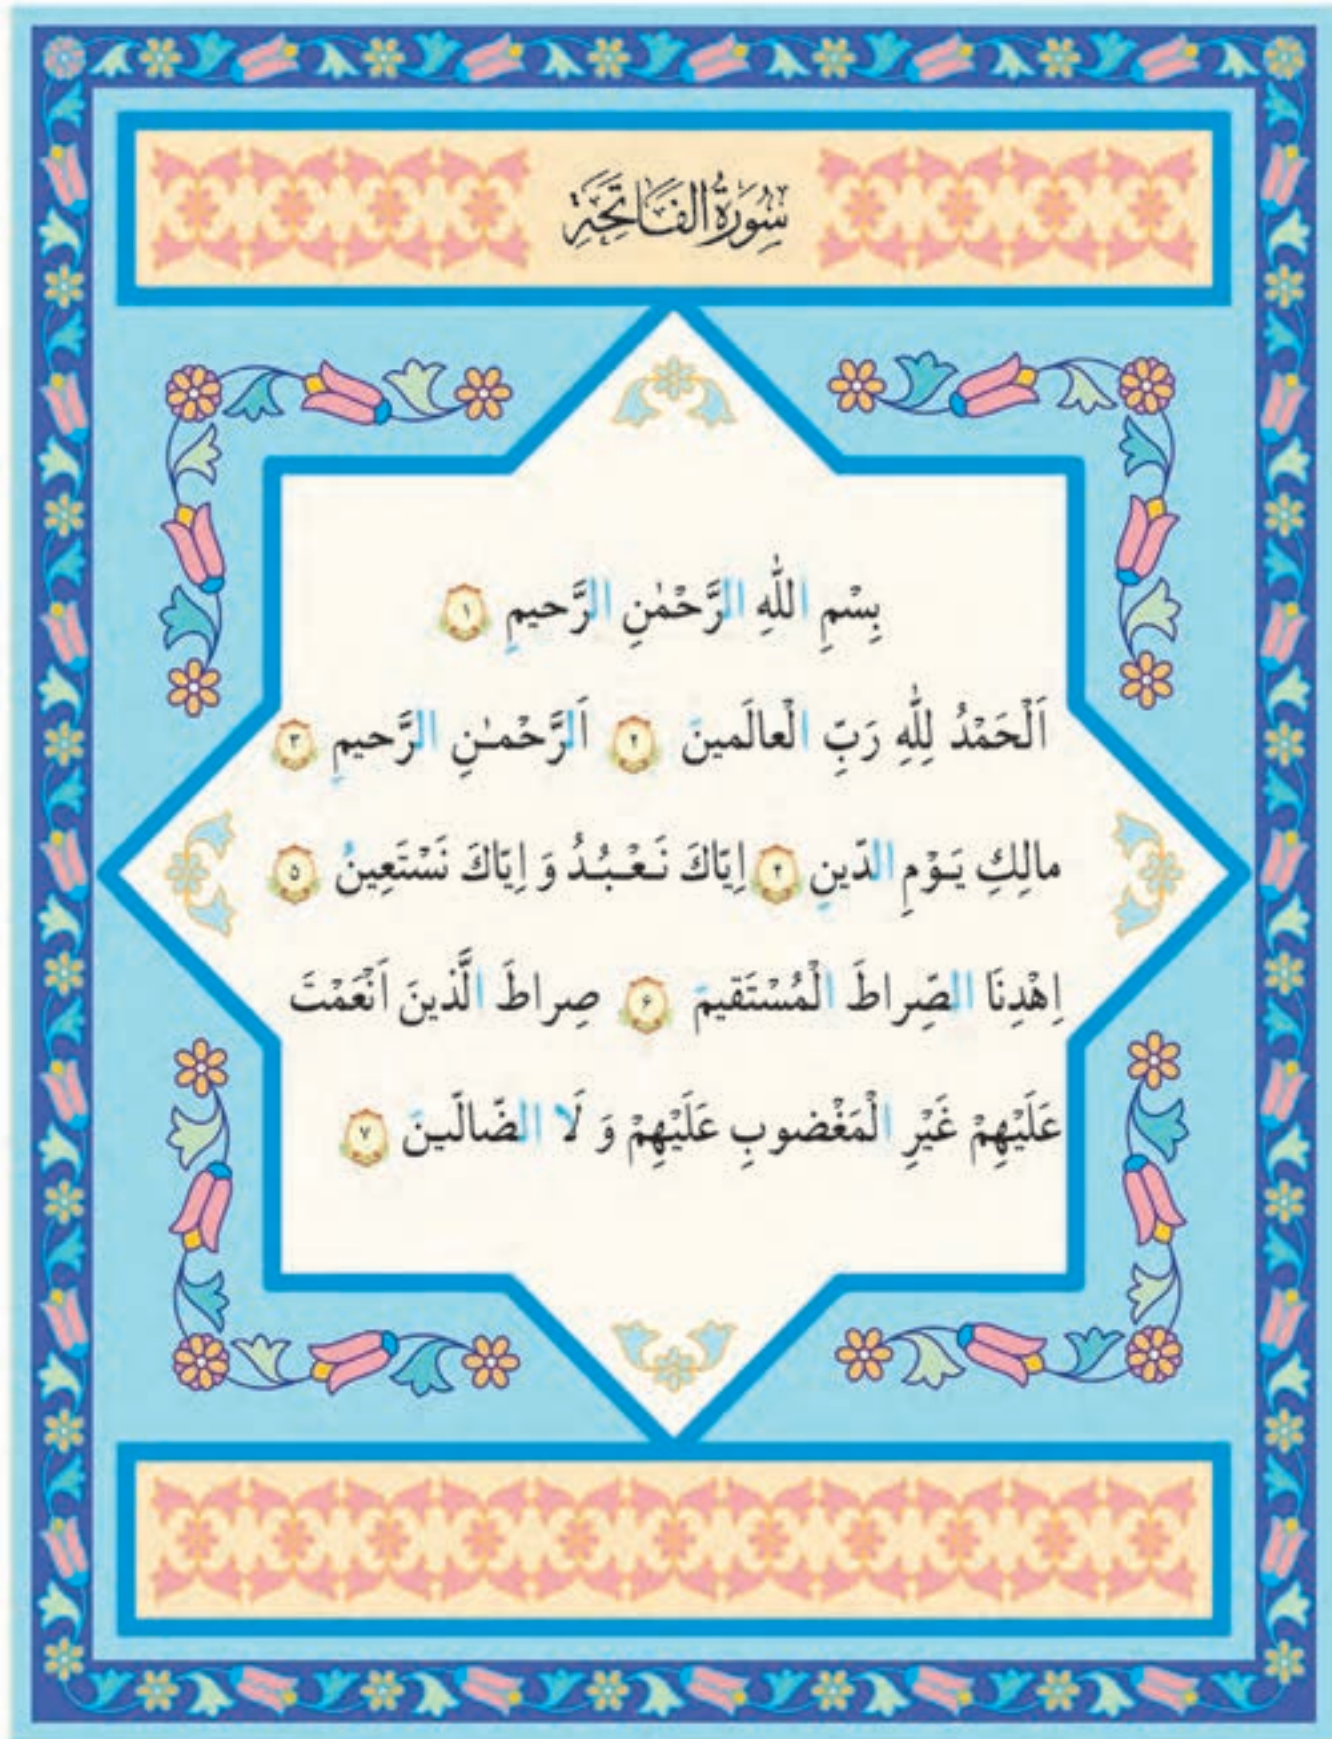 سُورَةُ الفَاتِحَةِ
بِسْمِ اللّٰهِ الرَّحْمٰنِ الرَّحيمِ ۱
اَلْحَمْدُ لِلّٰهِ رَبِّ الْعالَمينَ ۲ اَلرَّحْمـٰنِ الرَّحيمِ ۳
مالِكِ يَـوْمِ الدّينِ ۴ اِيّاكَ نَـعْـبُـدُ وَ اِيّاكَ نَسْتَعِينُ ۵
اِهْدِنَا الصِّراطَ الْمُسْتَقيمَ ۶ صِراطَ الَّذينَ اَنْعَمْتَ
عَلَيْهِمْ غَيْرِ الْمَغْضوبِ عَلَيْهِمْ وَ لَا الضّالّـيـنَ ۷